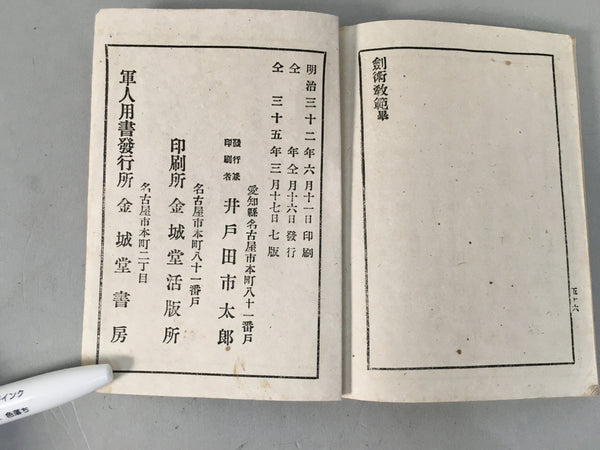 劍術敎範畢
五十六
明治三十二年六月十一日印刷
仝 年仝月十六日發行
仝 三十五年三月十七日七版
愛知縣名古屋市本町八十一番戶
發行兼
印刷者
井戶田市太郎
名古屋市本町八十一番戶
印刷所 金城堂活版所
名古屋市本町二丁目
軍人用書發行所 金城堂書房
インク
色落ち